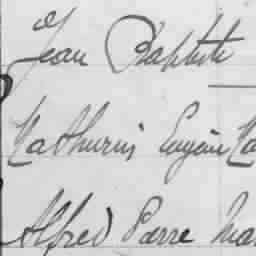 Jean Baptiste
Mathurin Eugène
Alfred Pierre Mar